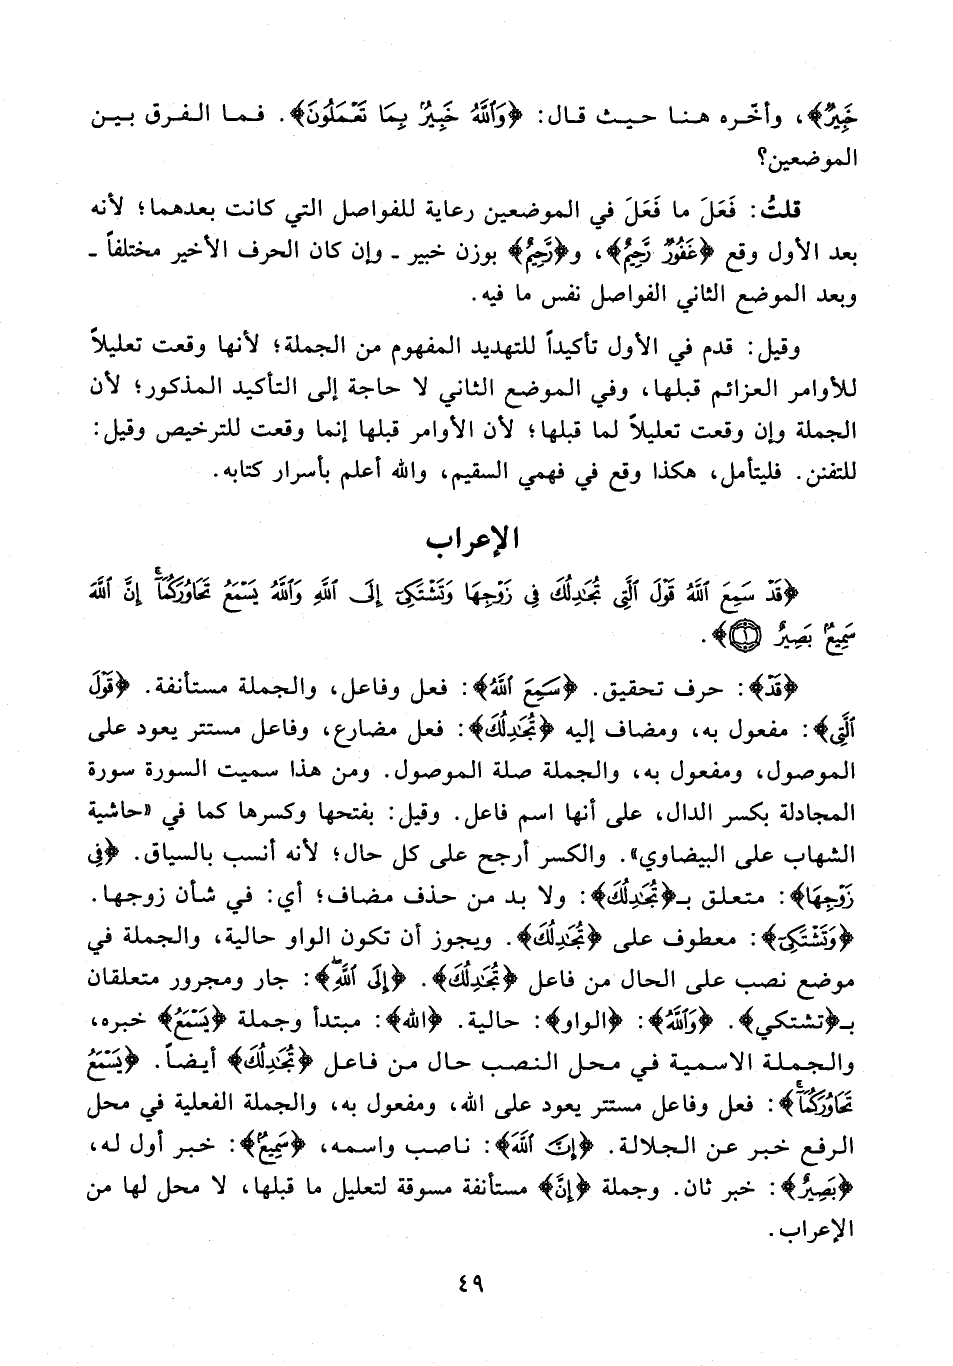 خَبِيرٌ﴾، وأخّره هنا حيث قال: ﴿وَٱللَّهُ خَبِيرٌۢ بِمَا تَعْمَلُونَ﴾. فما الفرق بين
الموضعين؟
قلتُ: فَعَلَ ما فَعَلَ في الموضعين رعاية للفواصل التي كانت بعدهما؛ لأنه
بعد الأول وقع ﴿غَفُورٌ رَّحِيمٌ﴾، و﴿رَّحِيمٌ﴾ بوزن خبير ـ وإن كان الحرف الأخير مختلفاً ـ
وبعد الموضع الثاني الفواصل نفس ما فيه.
وقيل: قدم في الأول تأكيداً للتهديد المفهوم من الجملة؛ لأنها وقعت تعليلاً
للأوامر العزائم قبلها، وفي الموضع الثاني لا حاجة إلى التأكيد المذكور؛ لأن
الجملة وإن وقعت تعليلاً لما قبلها؛ لأن الأوامر قبلها إنما وقعت للترخيص وقيل:
للتفنن. فليتأمل، هكذا وقع في فهمي السقيم، والله أعلم بأسرار كتابه.
الإعراب
﴿قَدْ سَمِعَ ٱللَّهُ قَوْلَ ٱلَّتِى تُجَٰدِلُكَ فِى زَوْجِهَا وَتَشْتَكِىٓ إِلَى ٱللَّهِ وَٱللَّهُ يَسْمَعُ تَحَاوُرَكُمَآ ۚ إِنَّ ٱللَّهَ
سَمِيعٌۢ بَصِيرٌ ١﴾.
﴿قَدْ﴾: حرف تحقيق. ﴿سَمِعَ ٱللَّهُ﴾: فعل وفاعل، والجملة مستأنفة. ﴿قَوْلَ
ٱلَّتِى﴾: مفعول به، ومضاف إليه ﴿تُجَٰدِلُكَ﴾: فعل مضارع، وفاعل مستتر يعود على
الموصول، ومفعول به، والجملة صلة الموصول. ومن هذا سميت السورة سورة
المجادلة بكسر الدال، على أنها اسم فاعل. وقيل: بفتحها وكسرها كما في «حاشية
الشهاب على البيضاوي». والكسر أرجح على كل حال؛ لأنه أنسب بالسياق. ﴿فِى
زَوْجِهَا﴾: متعلق بـ﴿تُجَٰدِلُكَ﴾: ولا بد من حذف مضاف؛ أي: في شأن زوجها.
﴿وَتَشْتَكِىٓ﴾: معطوف على ﴿تُجَٰدِلُكَ﴾. ويجوز أن تكون الواو حالية، والجملة في
موضع نصب على الحال من فاعل ﴿تُجَٰدِلُكَ﴾. ﴿إِلَى ٱللَّهِ﴾: جار ومجرور متعلقان
بـ﴿تشتكي﴾. ﴿وَٱللَّهُ﴾: ﴿الواو﴾: حالية. ﴿الله﴾: مبتدأ وجملة ﴿يَسْمَعُ﴾ خبره،
والجملة الاسمية في محل النصب حال من فاعل ﴿تُجَٰدِلُكَ﴾ أيضاً. ﴿يَسْمَعُ
تَحَاوُرَكُمَآ ۚ﴾: فعل وفاعل مستتر يعود على الله، ومفعول به، والجملة الفعلية في محل
الرفع خبر عن الجلالة. ﴿إِنَّ ٱللَّهَ﴾: ناصب واسمه، ﴿سَمِيعٌۢ﴾: خبر أول له،
﴿بَصِيرٌ﴾: خبر ثان. وجملة ﴿إِنَّ﴾ مستأنفة مسوقة لتعليل ما قبلها، لا محل لها من
الإعراب.
٤٩